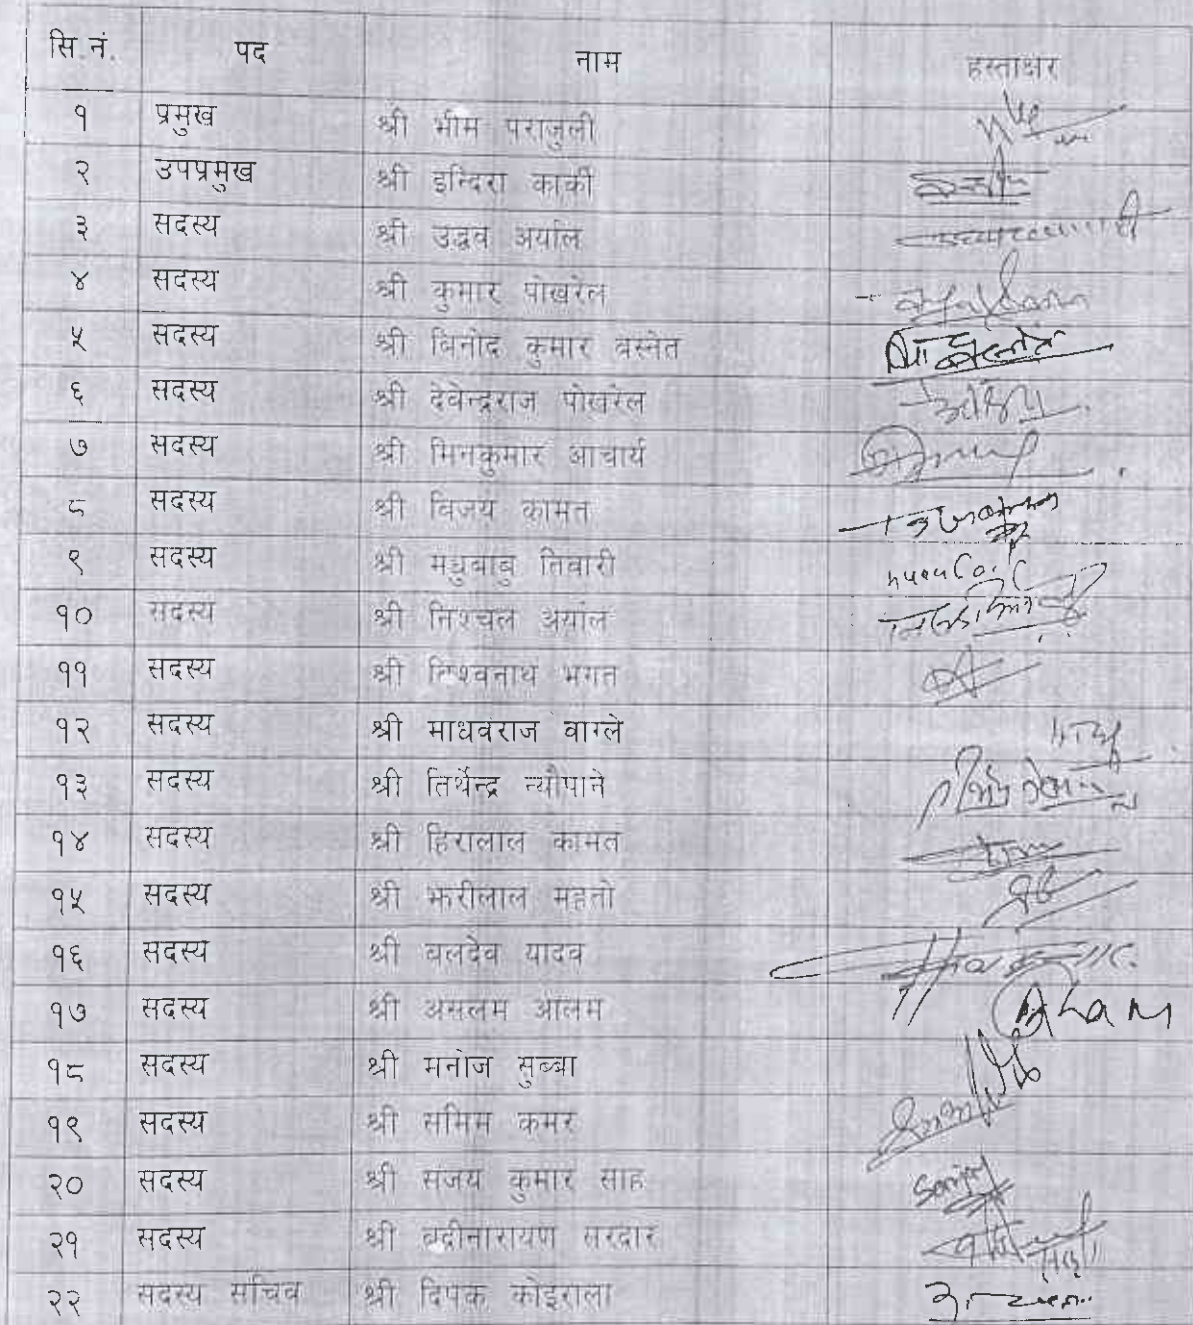 सि.नं. पद नाम हस्ताक्षर
१ प्रमुख श्री भीम पराजुली
२ उपप्रमुख श्री इन्दिरा कार्की
३ सदस्य श्री उद्धव अर्याल
४ सदस्य श्री कुमार पोखरेल
५ सदस्य श्री विनोद कुमार वस्नेत
६ सदस्य श्री देवेन्द्रराज पोखरेल
७ सदस्य श्री मिनकुमार आचार्य
८ सदस्य श्री विजय कामत
९ सदस्य श्री मधुबाबु तिवारी
१० सदस्य श्री निश्चल अर्याल
११ सदस्य श्री विश्वनाथ भगत
१२ सदस्य श्री माधवराज वाग्ले
१३ सदस्य श्री तिर्थेन्द्र न्यौपाने
१४ सदस्य श्री हिरालाल कामत
१५ सदस्य श्री झरीलाल महतो
१६ सदस्य श्री बलदेव यादव
१७ सदस्य श्री असलम आलम
१८ सदस्य श्री मनोज सुब्बा
१९ सदस्य श्री समिम कमर
२० सदस्य श्री संजय कुमार साह Sanjay
२१ सदस्य श्री बद्रीनारायण सरदार
२२ सदस्य सचिव श्री दिपक कोइराला